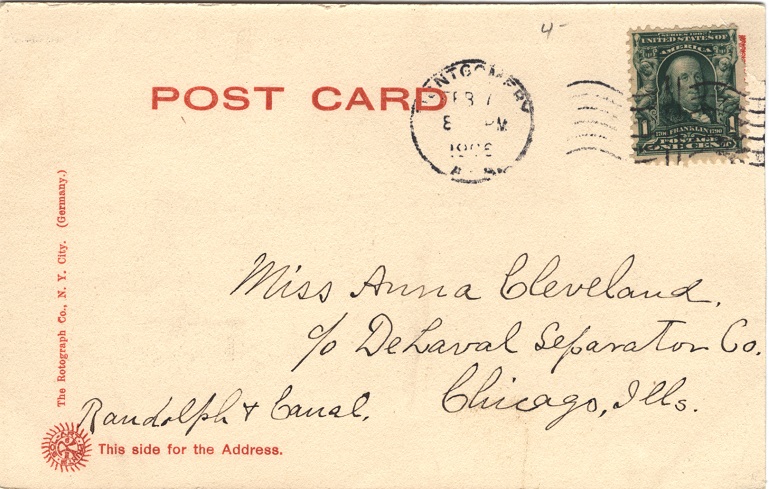 4-
SERIES 1902
UNITED STATES OF
AMERICA
1706 FRANKLIN 1790
POSTAGE
1 ONE CENT 1
POST CARD
MONTGOMERY
FEB
8 PM
The Rotograph Co., N. Y. City. (Germany.)
Miss Anna Cleveland,
c/o DeLaval Separator Co.
Chicago, Ills.
Randolph & Canal.
This side for the Address.